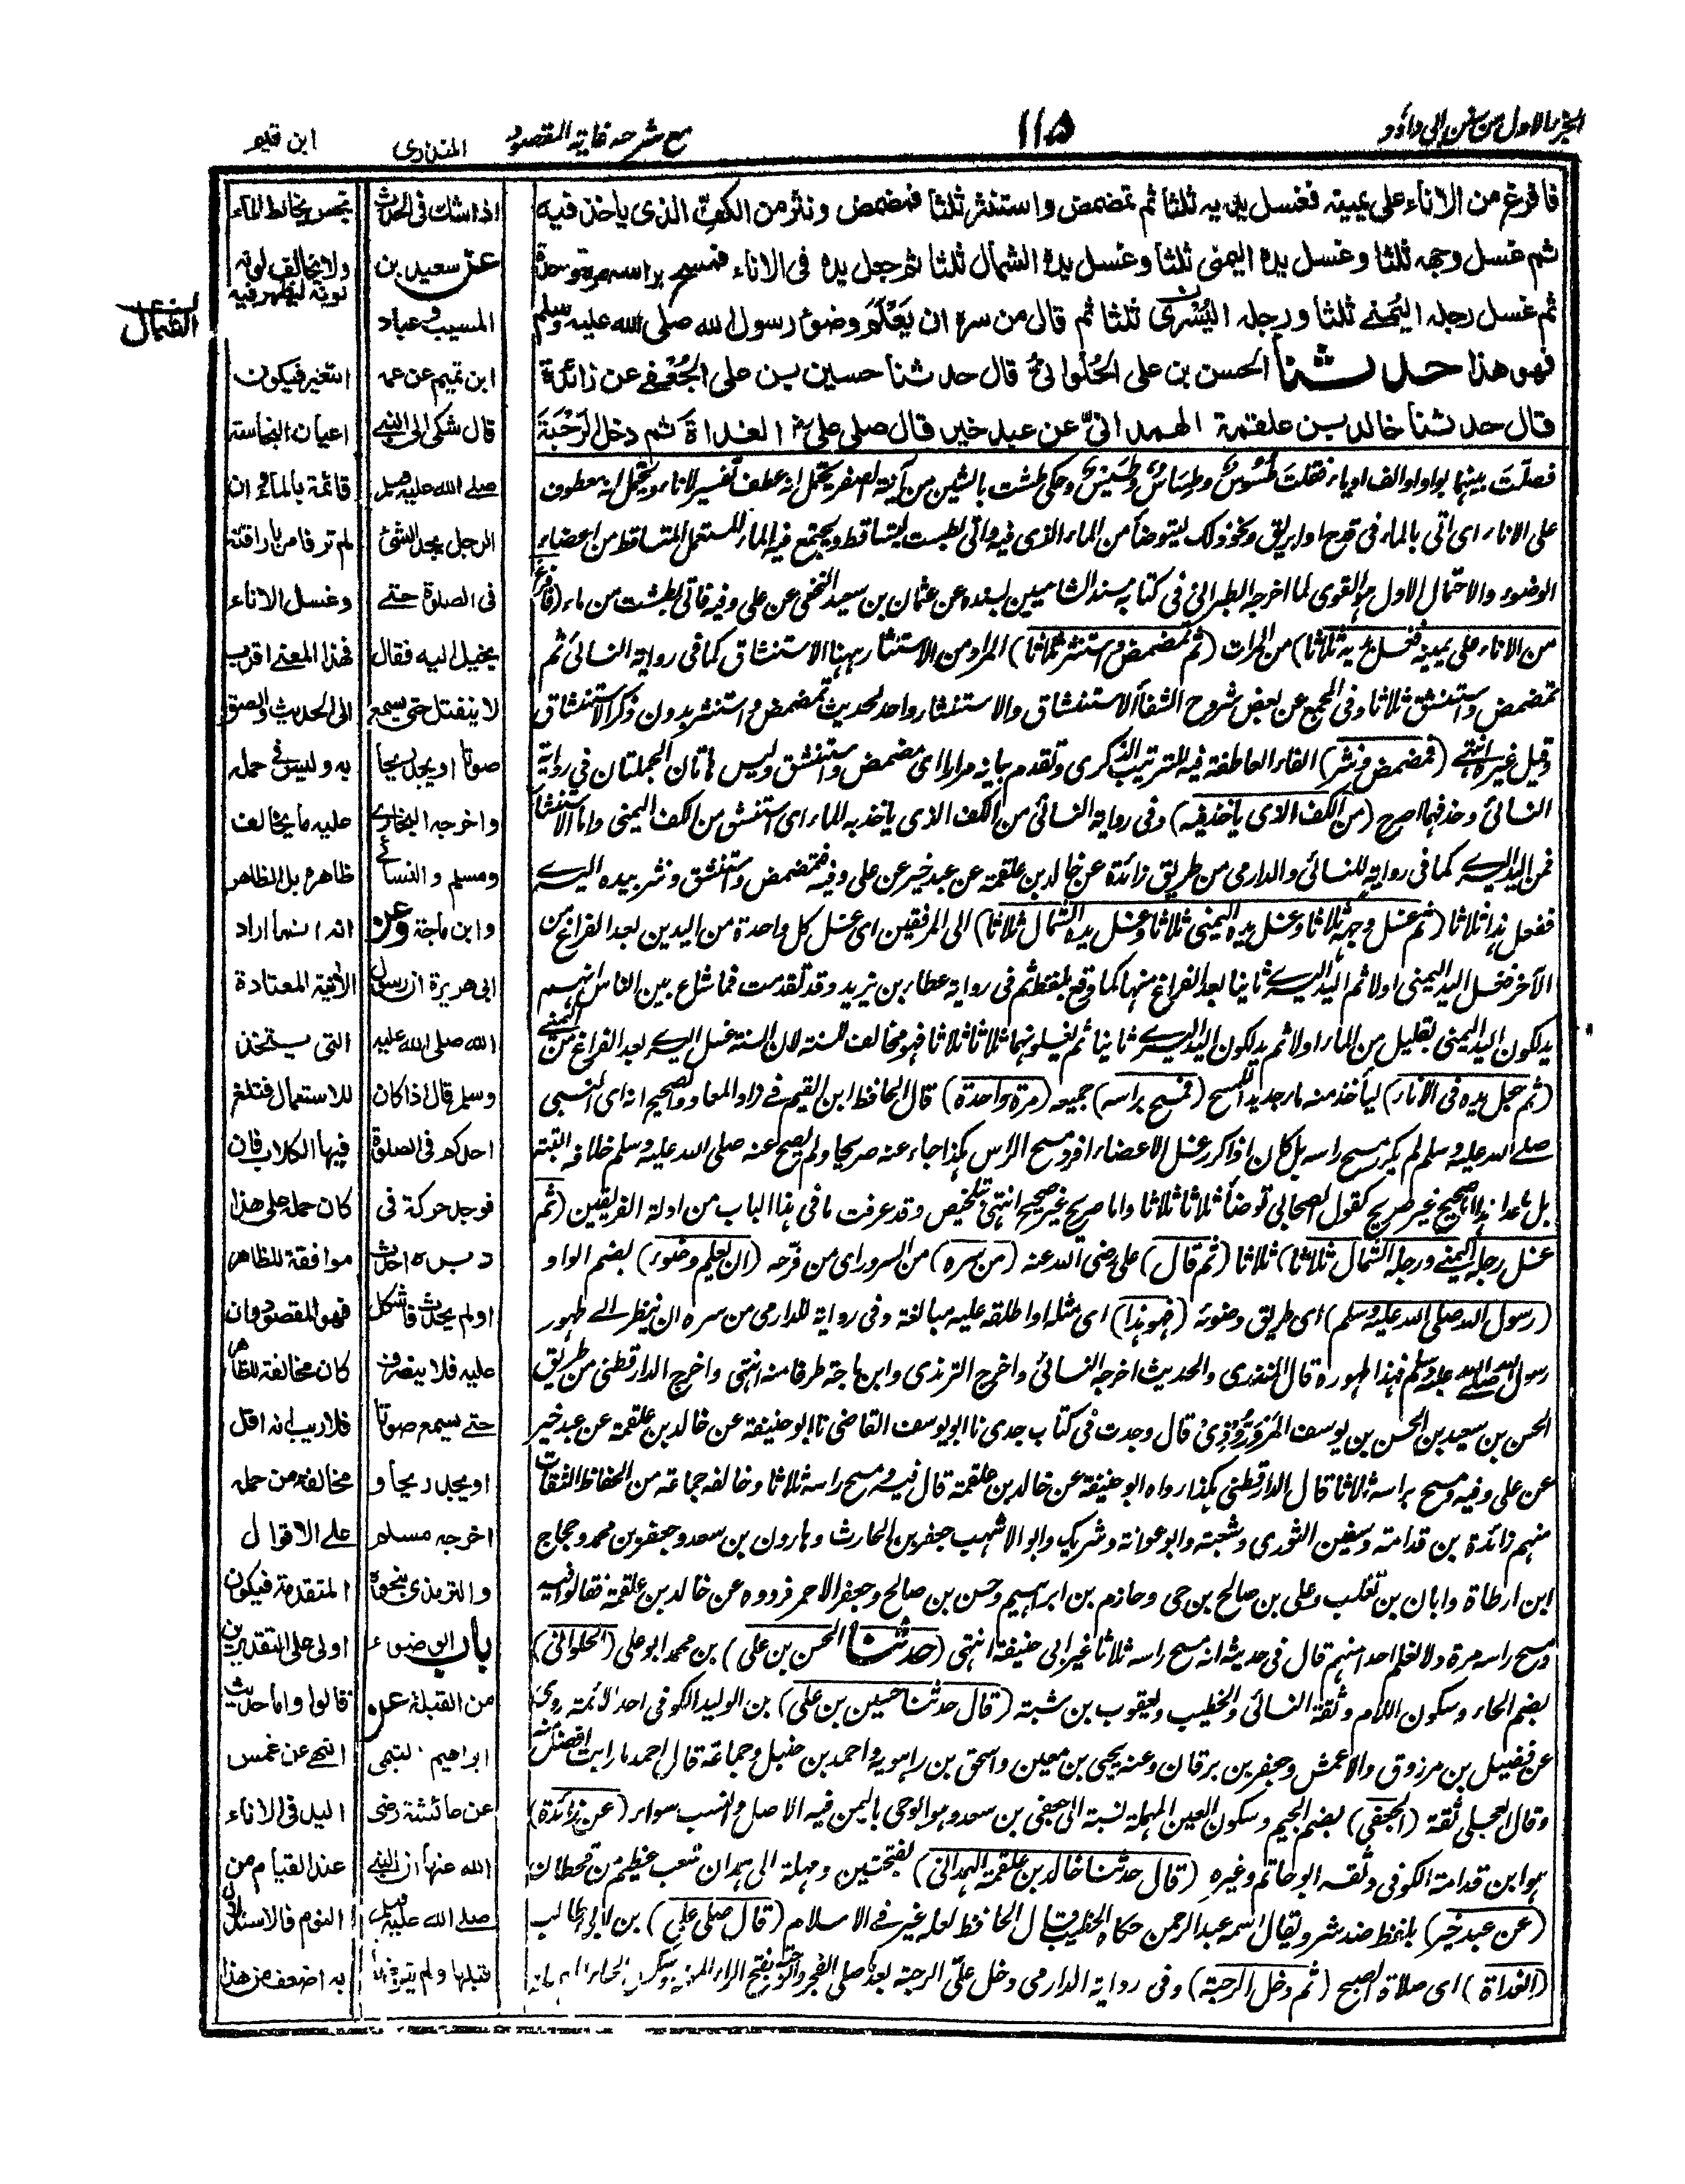 الجزء الاول من سنن ابى داؤد
١١٥
مع شرحه غاية المقصود
المنذرى
ابن قيم
فافرغ من الاناء على يمينه فغسل يديه ثلثا ثم تمضمض واستنثر ثلثا فمضمض ونثر من الكف الذى ياخذ فيه
ثم غسل وجهه ثلثا وغسل يده اليمنى ثلثا وغسل يده الشمال ثلثا ثم جعل يده فى الاناء فمسح براسه مرة واحدة
ثم غسل رجله اليمنى ثلثا ورجله اليسرى ثلثا ثم قال من سره ان يعلم وضوء رسول الله صلى الله عليه وسلم
فهو هذا حدثنا الحسن بن على الحلوانى قال حدثنا حسين بن على الجعفى عن زائدة
قال حدثنا خالد بن علقمة الهمدانى عن عبد خير قال صلى على الغداة ثم دخل الرحبة
الشمال
فصلت بينهما بواو او الف او ياء فقلت طسوس وطساس وطسيس وحكى طشت بالشين من آنية الصفر يحتمل انه عطف تفسير لاناء ويحتمل انه معطوف
على الاناء اى اتى بالماء فى قدح او ابريق ونحو ذلك ليتوضأ من الماء الذى فيه واتى بطست ليتساقط ويجتمع فيه الماء المستعمل المتساقط من اعضاء
الوضوء والاحتمال الاول هو القوى لما اخرجه الطبرانى فى كتابه مسند الشاميين بسنده عن عثمان بن سعيد النخعى عن على وفيه فاتى بطشت من ماء (فافرغ
من الاناء على يمينه فغسل يديه ثلاثا) من المرات (ثم تمضمض واستنثر ثلاثا) المراد من الاستنثار ههنا الاستنشاق كما فى رواية النسائى ثم
تمضمض واستنشق ثلاثا وفى المجمع عن بعض شروح الشفا الاستنشاق والاستنثار واحد لحديث تمضمض واستنثر بدون ذكر الاستنشاق
وقيل غيره انتهى (فمضمض ونثر) الفاء العاطفة فيه للترتيب الذكرى وتقدم بيانه مرارا اى مضمض واستنشق وليس هاتان الجملتان فى رواية
النسائى وحذفهما اصح (من الكف الذى ياخذ فيه) وفى رواية النسائى من الكف الذى ياخذ به الماء اى استنشق من الكف اليمنى واما الاستنثار
فمن اليد اليسرى كما فى رواية للنسائى والدارمى من طريق زائدة عن خالد بن علقمة عن عبد خير عن على وفيه فتمضمض واستنشق ونثر بيده اليسرى
ففعل هذا ثلاثا (ثم غسل وجهه ثلاثا وغسل يده اليمنى ثلاثا وغسل يده الشمال ثلاثا) الى المرفقين اى غسل كل واحدة من اليدين بعد الفراغ من
الآخر فغسل اليد اليمنى اولا ثم اليد اليسرى ثانيا بعد الفراغ منها كما وقع بلفظ ثم فى رواية عطاء بن يزيد وقد تقدمت فما شاع بين الناس انهم
يدلكون اليد اليمنى بقليل من الماء اولا ثم يدلكون اليد اليسرى ثانيا ثم يغسلونهما ثلاثا ثلاثا فهو مخالف للسنة لان السنة غسل اليسرى بعد الفراغ من اليمنى
(ثم جعل يده فى الاناء) ليأخذ منه ماء جديدا للمسح (فمسح براسه) جميعه (مرة واحدة) قال الحافظ ابن القيم فى زاد المعاد والصحيح انه اى النبى
صلى الله عليه وسلم لم يكرر مسح راسه بل كان اذا كرر غسل الاعضاء افرد مسح الرأس هكذا جاء عنه صريحا ولم يصح عنه صلى الله عليه وسلم خلافه البتة
بل ما عدا هذا اما صحيح غير صريح كقول الصحابى توضأ ثلاثا ثلاثا واما صريح غير صحيح انتهى بتلخيص وقد عرفت ما فى هذا الباب من ادلة الفريقين (ثم
غسل رجله اليمنى ورجله الشمال ثلاثا) ثلاثا (ثم قال) على رضى الله عنه (من سره) من السرور اى من فرحه (ان يعلم وضوء) بضم الواو
(رسول الله صلى الله عليه وسلم) اى طريق وضوئه (فهو هذا) اى مثله او اطلقه عليه مبالغة وفى رواية للدارمى من سره ان ينظر الى طهور
رسول الله صلى الله عليه وسلم فهذا طهوره قال المنذرى والحديث اخرجه النسائى واخرج الترمذى وابن ماجة طرفا منه انتهى واخرج الدارقطنى من طريق
الحسن بن سعيد بن الحسن بن يوسف المروروذى قال وجدت فى كتاب جدى نا ابو يوسف القاضى نا ابو حنيفة عن خالد بن علقمة عن عبد خير
عن على وفيه ومسح براسه ثلاثا قال الدارقطنى هكذا رواه ابو حنيفة عن خالد بن علقمة قال فيه ومسح راسه ثلاثا وخالفه جماعة من الحفاظ الثقات
منهم زائدة بن قدامة وسفين الثورى وشعبة وابو عوانة وشريك وابو الاشهب جعفر بن الحارث وهارون بن سعد وجعفر بن محمد وحجاج
ابن ارطاة وابان بن تغلب وعلى بن صالح بن حى وحازم بن ابراهيم وحسن بن صالح وجعفر الاحمر فرووه عن خالد بن علقمة فقالوا فيه
ومسح راسه مرة ولا نعلم احدا منهم قال فى حديثه انه مسح راسه ثلاثا غير ابى حنيفة انتهى (حدثنا الحسن بن على) بن محمد ابو على (الحلوانى)
بضم الحاء وسكون اللام وثقه النسائى والخطيب ويعقوب بن شيبة (قال حدثنا حسين بن على) بن الوليد الكوفى احد الائمة روى
عن فضيل بن مرزوق والاعمش وجعفر بن برقان وعنه يحيى بن معين واسحق بن راهويه واحمد بن حنبل وجماعة قال احمد ما رايت افضل منه
وقال العجلى ثقة (الجعفى) بضم الجيم وسكون العين المهملة نسبة الى جعفى بن سعد وهو ابو حى باليمن فيه الاصل والنسب سواء (عن زائدة)
هو ابن قدامة الكوفى وثقه ابو حاتم وغيره (قال حدثنا خالد بن علقمة الهمدانى) بفتحتين ومهملة الى همدان شعب عظيم من قحطان
(عن عبد خير) بلفظ ضد شر ويقال اسمه عبد الرحمن حكاه الخطيب قال الحافظ لعله غير فى الاسلام (قال صلى على) بن ابى طالب
(الغداة) اى صلاة الصبح (ثم دخل الرحبة) وفى رواية الدارمى دخل على الرحبة بعد ما صلى الفجر والرحبة بفتح الراء
اذا شك فى الحدث
عن سعيد بن
المسيب وعباد
ابن تميم عن عمه
قال شكى الى النبى
صلى الله عليه وسلم
الرجل يجد الشئ
فى الصلوة حتى
يخيل اليه فقال
لا ينفتل حتى يسمع
صوتا او يجد ريحا
واخرجه البخارى
ومسلم والنسائى
وابن ماجة وعن
ابى هريرة ان رسول
الله صلى الله عليه
وسلم قال اذا كان
احدكم فى الصلوة
فوجد حركة فى
دبره احدث
اولم يحدث فاشكل
عليه فلا ينصرف
حتى يسمع صوتا
او يجد ريحا و
اخرجه مسلم
والترمذى بنحوه
باب الوضوء
من القبلة عن
ابراهيم التيمى
عن عائشة رضى
الله عنها ان النبى
صلى الله عليه وسلم
قبلها ولم يتوضأ
تجس يخالط الماء
ولا يخالف لونه
لونه ليظهر فيه
التغير فيكون
اعيان النجاسة
قائمة بالماء وان
لم تر فامر باراقته
وغسل الاناء
فهذا المعنى اقرب
الى الحديث والصق
به وليس فى حمله
عليه ما يخالف
ظاهره بل الظاهر
انه انما اراد
الآنية المعتادة
التى يتخذ
للاستعمال فتلغ
فيها الكلاب فان
كان حمله على هذا
موافقة للظاهر
فهو المقصود وان
كان مخالفة للظاهر
فلا ريب انه اقل
مخالفة من حمله
على الاقوال
المتقدمة فيكون
اولى على التقديرين
قالوا واما حديث
النهى عن غمس
اليد فى الاناء
عند القيام من
النوم فالاستدلال
به اضعف من هذا